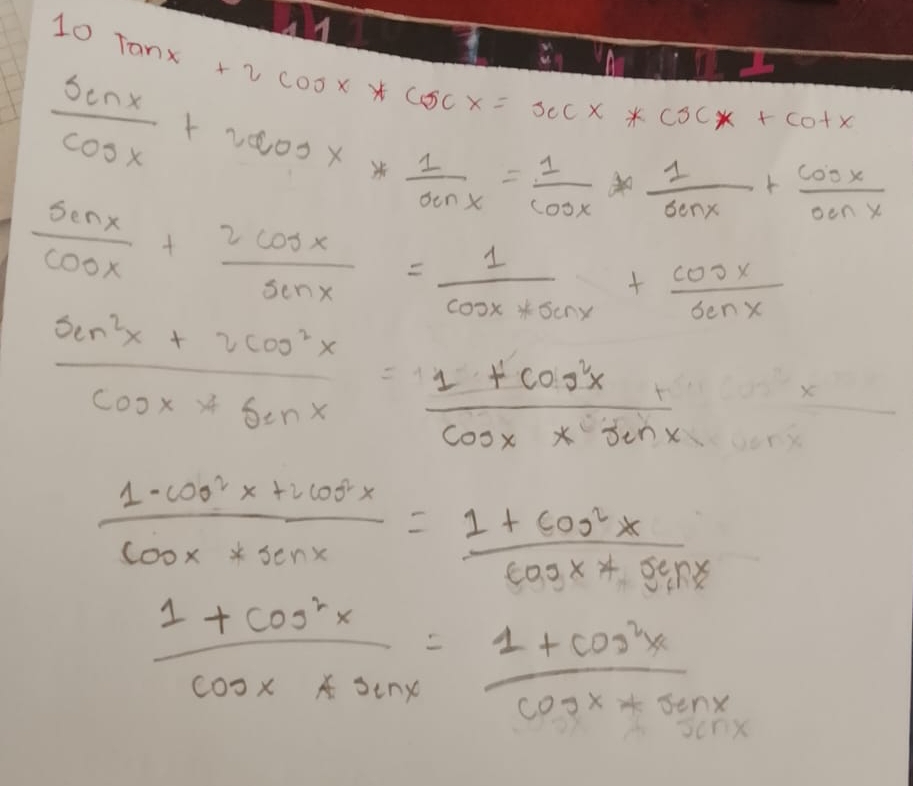 10 Tanx + 2 cosx * cscx = secx * cscx + cotx
senx/cosx + 2cosx * 1/senx = 1/cosx * 1/senx + cosx/senx
senx/cosx + 2cosx/senx = 1/cosx * senx + cosx/senx
sen²x + 2cos²x/cosx * senx = 1 + cos²x/cosx * senx
1-cos²x+2cos²x/cosx * senx = 1 + cos²x/cosx * senx
1 + cos²x/cosx * senx = 1 + cos²x/cosx * senx